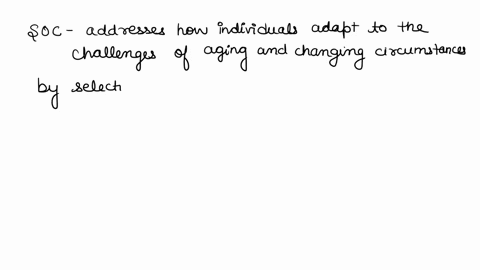 SOC - addresses how individuals adapt to the
challenges of aging and changing circumstances
by select